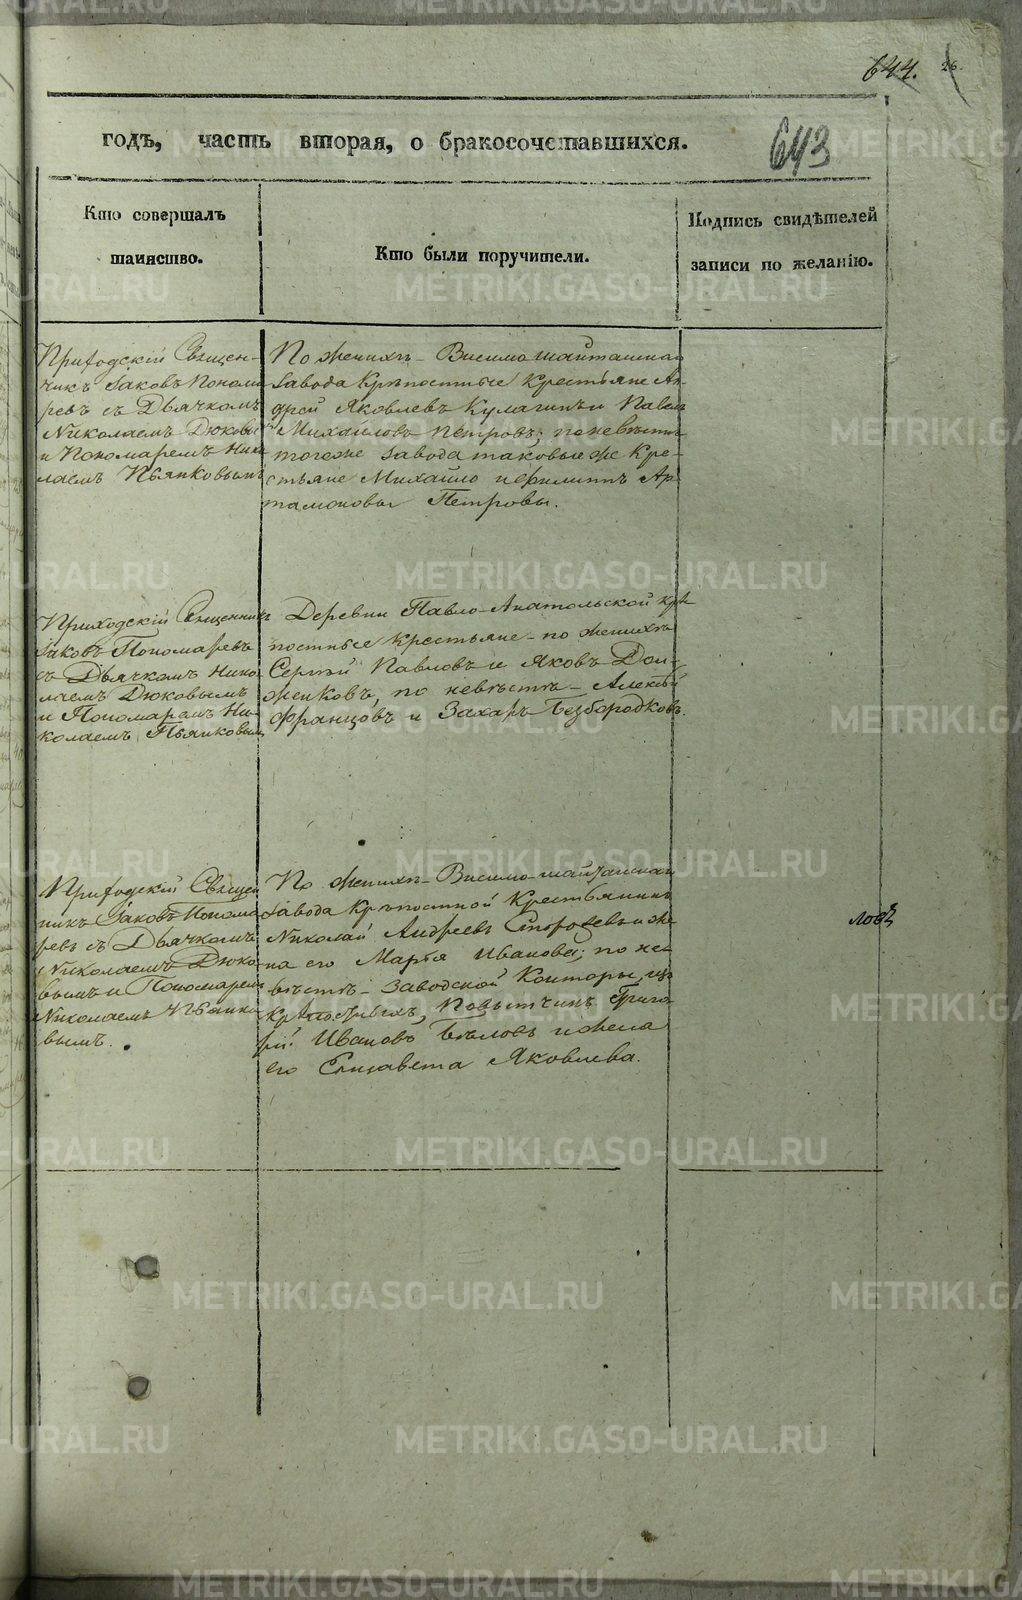 644. 26.
годъ, часть вторая, о бракосочетавшихся.
643
Кто совершалъ
таинство.
Кто были поручители.
Подпись свидѣтелей
записи по желанію.
Приходскій Священ-
никъ Іаковъ Понома
ревъ съ Дьячкомъ
Николаемъ Дюковы
и Пономаремъ Нико
лаемъ Пьянковымъ
По женихѣ – Висимошайтанска
завода Крѣпостные Крестьяне Ан-
дрей Яковлевъ Кулагинъ и Павелъ
Михайловъ Петровъ; по невѣстѣ
тогоже завода таковые же Кре-
стьяне Михайло и Филиппъ Ар
тамоновы Петровы.
Приходскій Священникъ
Іаковъ Пономаревъ
съ Дьячкомъ Нико
лаемъ Дюковымъ
и Пономаремъ Ни-
колаемъ Пьянковым
Деревни Павло-Анатольской крѣ
постные крестьяне – по женихѣ
Сергѣй Павловъ и Яковъ Дол-
женковъ, по невѣстѣ – Алексѣй
Французовъ и Захаръ Безбородковъ.
Приходскій Священ
никъ Іаковъ Понома
ревъ съ Дьячкомъ
Николаемъ Дюко-
вымъ и Пономарем
Николаемъ Пьянко
вымъ.
По женихѣ – Висимо-шайтанска
завода Крѣпостной Крестьянинъ
Николай Андреевъ и же
на его Марья Иванова; по не
вѣстѣ – Заводской Конторы, из
крѣпостныхъ, Повытчикъ Григо
рій Ивановъ Бѣловъ и жена
его Елизавета Яковлева.
ловъ
METRIKI.GASO-URAL.RU